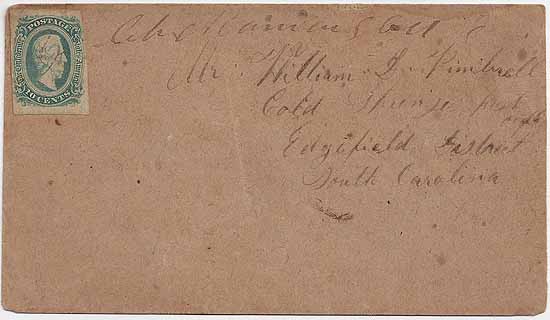 POSTAGE
The Confederate States of America
10 CENTS
Mr. William D. Kimbrell
Cold Springs post
Edgifield District
South Carolina